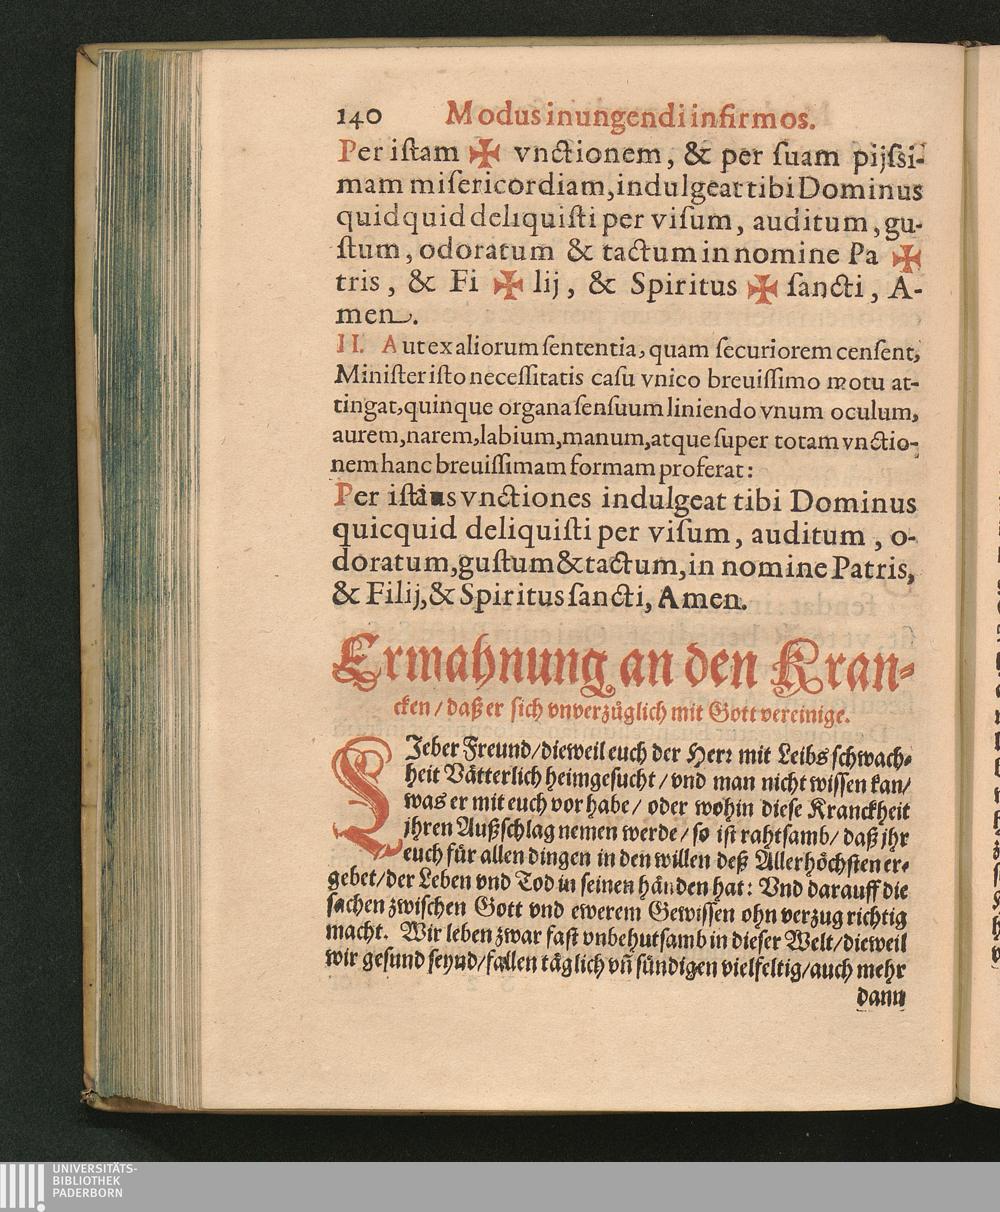 140 Modus inungendi infirmos.
Per iſtam ✠ vnctionem, & per ſuam pijſsi-
mam miſericordiam, indulgeat tibi Dominus
quidquid deliquiſti per viſum, auditum, gu-
ſtum, odoratum & tactum in nomine Pa ✠
tris, & Fi ✠ lij, & Spiritus ✠ ſancti, A-
men.
II. Aut ex aliorum ſententia, quam ſecuriorem cenſent,
Miniſter iſto neceſſitatis caſu vnico breuiſſimo motu at-
tingat, quinque organa ſenſuum liniendo vnum oculum,
aurem, narem, labium, manum, atque ſuper totam vnctio-
nem hanc breuiſſimam formam proferat:
Per iſtas vnctiones indulgeat tibi Dominus
quicquid deliquiſti per viſum, auditum, o-
doratum, guſtum & tactum, in nomine Patris,
& Filij, & Spiritus ſancti, Amen.
Ermahnung an den Kran-
cken / daß er ſich vnverzüglich mit Gott vereinige.
LJeber Freund / dieweil euch der Herr mit Leibs ſchwach-
heit Vätterlich heimgeſucht / vnd man nicht wiſſen kan /
was er mit euch vor habe / oder wohin dieſe Kranckheit
jhren Außſchlag nemen werde / ſo iſt rahtſamb / daß jhr
euch für allen dingen in den willen deß Allerhöchſten er-
gebet / der Leben vnd Tod in ſeinen händen hat: Vnd darauff die
ſachen zwiſchen Gott vnd ewerem Gewiſſen ohn verzug richtig
macht. Wir leben zwar faſt vnbehutſamb in dieſer Welt / dieweil
wir geſund ſeynd / fallen täglich vñ ſündigen vielfeltig / auch mehr
dann
UNIVERSITÄTS-
BIBLIOTHEK
PADERBORN